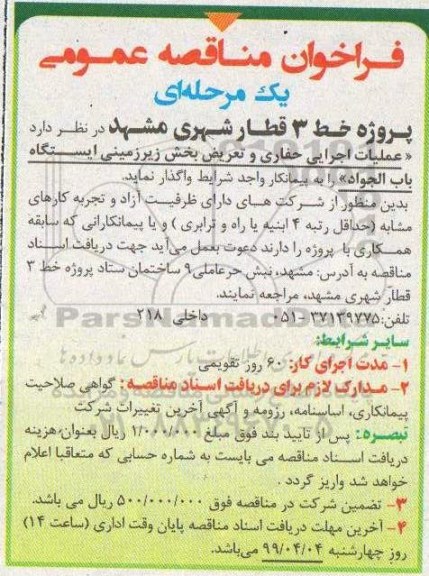 فراخوان مناقصه عمومی
یک مرحله‌ای
پروژه خط ۳ قطار شهری مشهد در نظر دارد
«عملیات اجرایی حفاری و تعریض بخش زیرزمینی ایستگاه
باب الجواد» را به پیمانکار واجد شرایط واگذار نماید.
بدین منظور از شرکت های دارای ظرفیت آزاد و تجربه کارهای
مشابه (حداقل رتبه ۴ ابنیه یا راه و ترابری) و یا پیمانکارانی که سابقه
همکاری با پروژه را دارند دعوت بعمل می‌آید جهت دریافت اسناد
مناقصه به آدرس: مشهد، نبش حرعاملی ۹ ساختمان ستاد پروژه خط ۳
قطار شهری مشهد، مراجعه نمایند.
تلفن: ۳۷۱۳۹۷۷۵-۰۵۱ داخلی ۲۱۸
ParsNamadData
سایر شرایط:
۱- مدت اجرای کار: ۶۰ روز تقویمی
۲- مدارک لازم برای دریافت اسناد مناقصه: گواهی صلاحیت
پیمانکاری، اساسنامه، رزومه و آگهی آخرین تغییرات شرکت
تبصره: پس از تایید بند فوق مبلغ ۱/۰۰۰/۰۰۰ ریال بعنوان هزینه
دریافت اسناد مناقصه می بایست به شماره حسابی که متعاقبا اعلام
خواهد شد واریز گردد.
۳- تضمین شرکت در مناقصه فوق ۵۰۰/۰۰۰/۰۰۰ ریال می باشد.
۴- آخرین مهلت دریافت اسناد مناقصه پایان وقت اداری (ساعت ۱۴)
روز چهارشنبه ۹۹/۰۴/۰۴ می‌باشد.